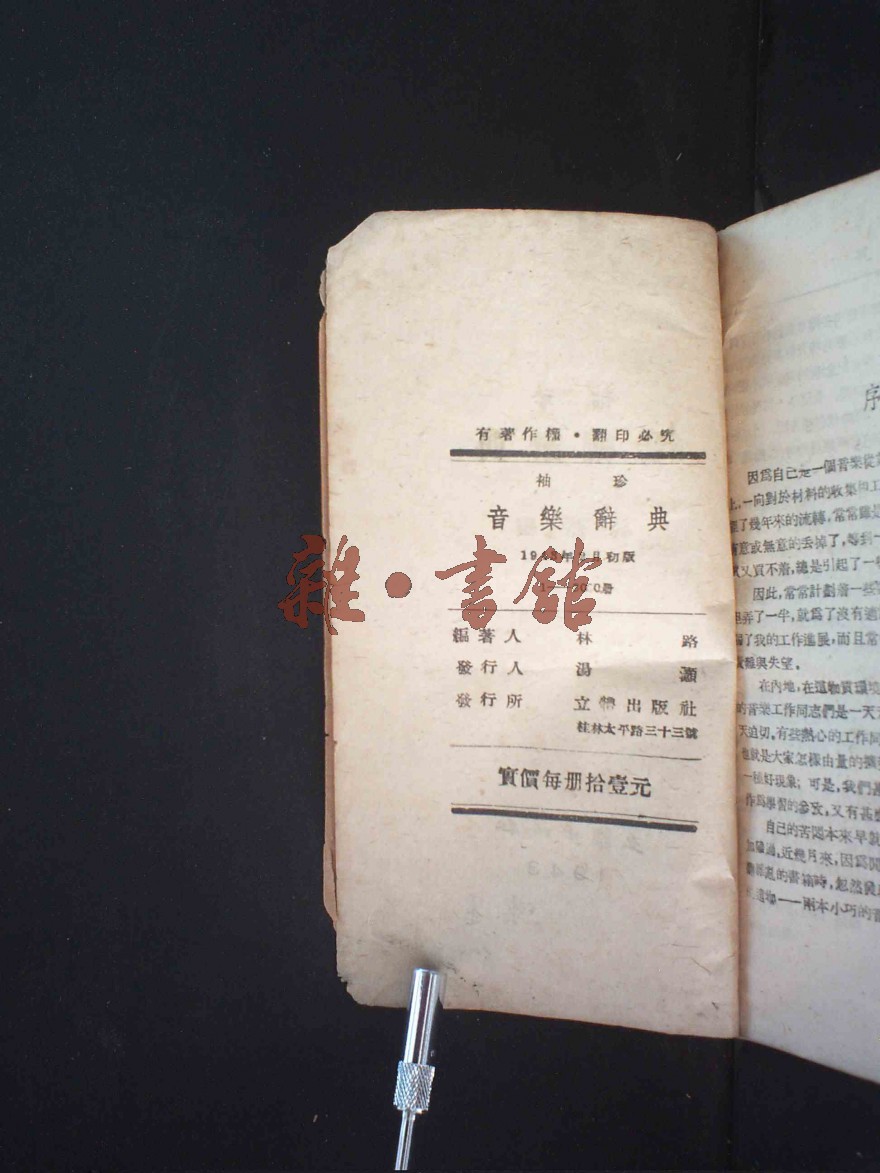 有著作權·翻印必究
袖珍
音樂辭典
年 月初版
冊
編著人 林路
發行人 湯灝
發行所 立體出版社
桂林太平路三十三號
實價每册拾壹元
雜·書館
序
因爲自己是一個音樂從
上,一向對於材料的收集和工
了幾年來的流轉,常常雖是
有意或無意的丟掉了,等到一
又買不着,總是引起了一
因此,常常計劃着一些
弄了一半,就爲了沒有適
了我的工作進展,而且常
難與失望。
在內地,在這物質環境
的音樂工作同志們是一天
天迫切,有些熱心的工作同
也就是大家怎樣由量的擴
一種好現象;可是,我們
作爲學習的參攷,又有甚
自己的苦悶本來早就
過,近幾月來,因爲
亂的書箱時,忽然
這——兩本小巧的音